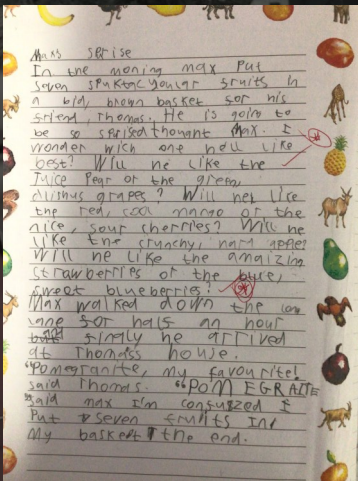 Maxs serise
In the moning max Put
seven spuktacyoular fruits in
a bid, brown basket for his
friend, Thomas. He is going to
be so sprised thought Max. I
wonder wich one hell like
best? Will he like the
Juice Pear or the green,
dlithus grapes? Will hel like
the red, cool mango or the
nice, sour cherries? Will he
like the crunchy, hard apple?
Will he like the amaizing
strawberries or the blue,
sweet blueberries?
Max walked down the long
lane for half an hour
finaly he arrived
at Thomass house.
"Pomegranite, my favourite!
said Thomas. "POM EGRAITE
said max I'm confuszed I
Put seven fruits in
My baskett the end.